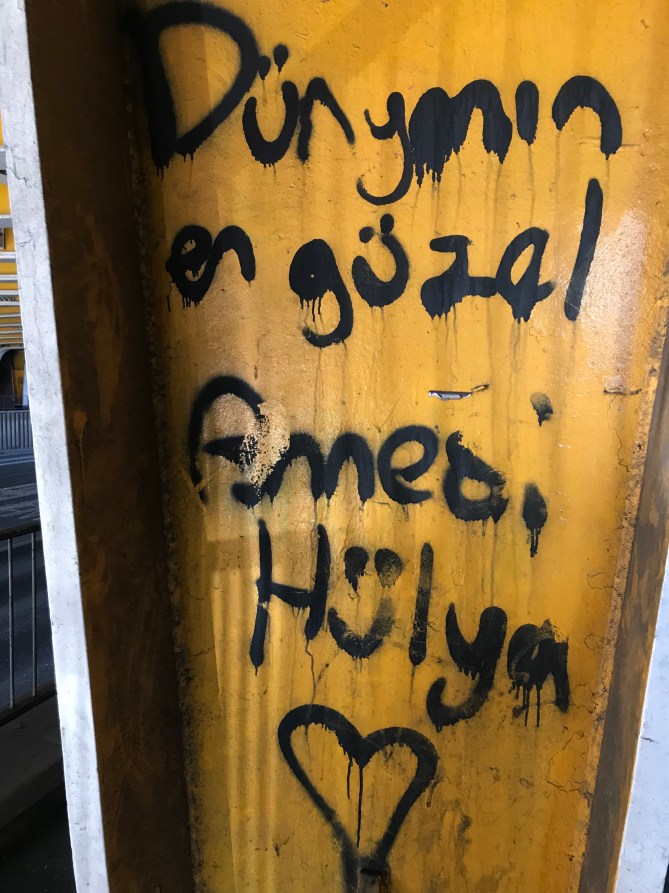 Dünyanın
en güzel
Annesi
Hülya